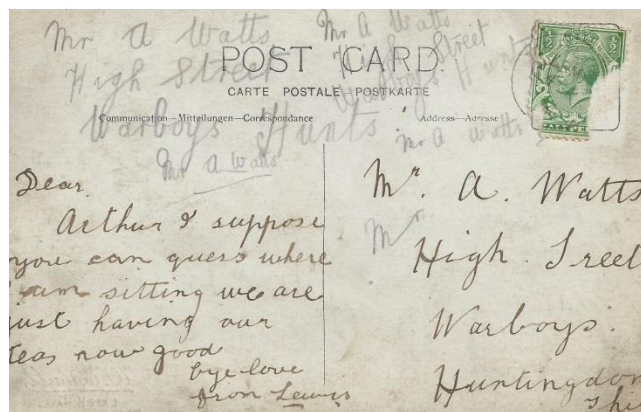 Mr A Watts
High Street
Warboys Hunts
Mr A Watts
Mr A Watts
High Street
Warboys Hunts
Mr A Watts
POST CARD.
CARTE POSTALE POSTKARTE
Communication—Mitteilungen—Correspondance
Address—Adresse
Dear.
Arthur I suppose
you can guess where
I am sitting we are
just having our
teas now good
bye love
from Lewis
Mr. A. Watts
Mr.
High. Sreet
Warboys.
Huntingdon
Shi